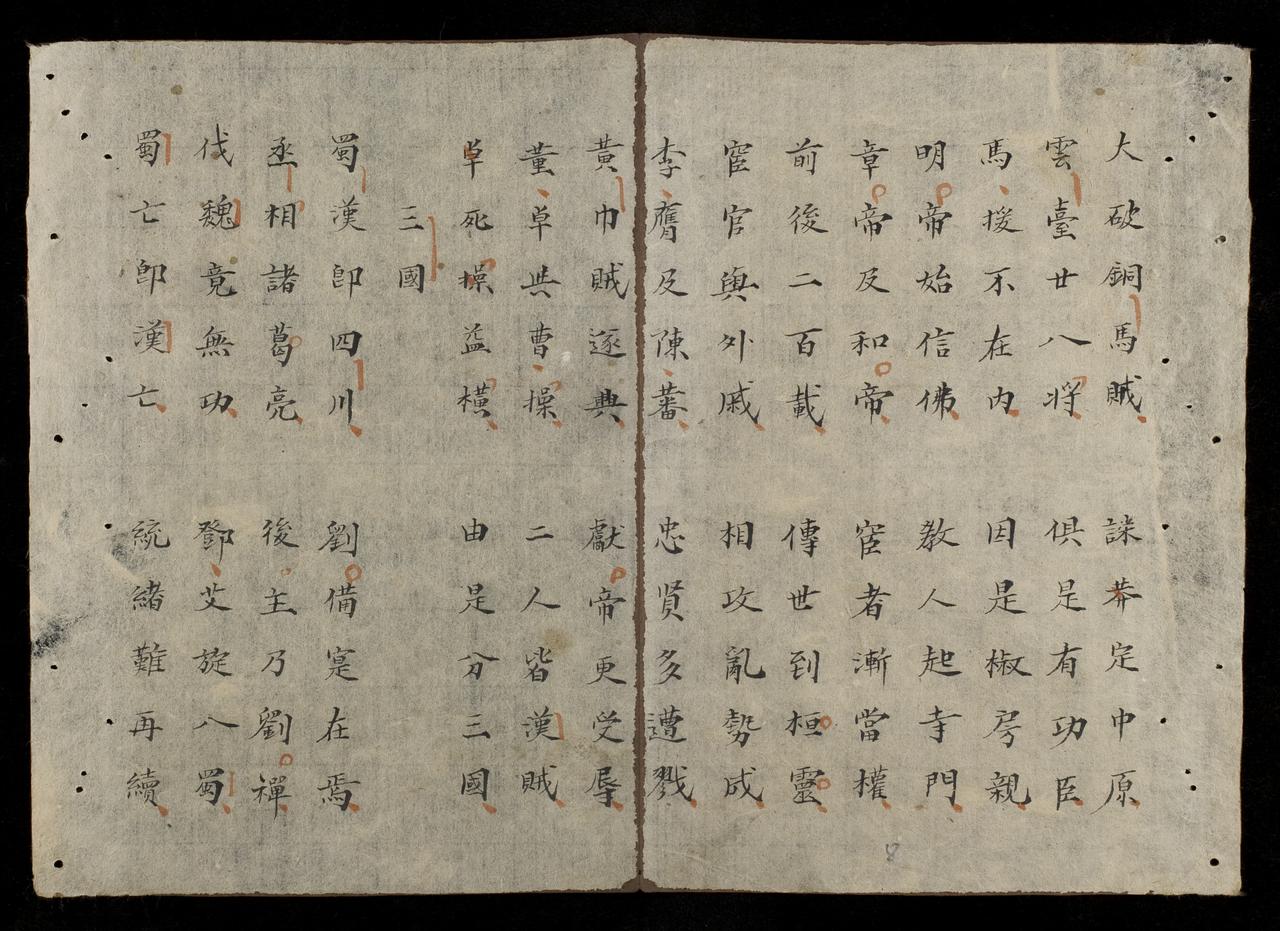 大破銅馬賊 誅莽定中原
雲臺廿八將 俱是有功臣
馬援不在内 因是椒房親
明帝始信佛 教人起寺門
章帝及和帝 宦者漸當權
前後二百載 傳世到桓靈
宦官與外戚 相攻亂勢成
李膺及陳蕃 忠贤多遭戮
黃巾賊逐興 獻帝更受辱
董卓共曹操 二人皆漢賊
卓死操益橫 由是分三國
三國
蜀漢即四川 劉備寔在焉
丞相諸葛亮 後主乃劉禪
伐魏竟無功 鄧艾旋入蜀
蜀亡即漢亡 統緒難再續
8